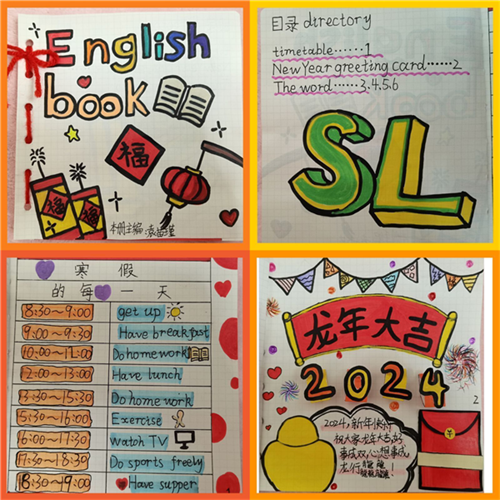 English
book
福
福
福
本册主编
目录 directory
timetable……1
New Year greeting card……2
The word……3.4.5.6
SL
寒假
的每一天
8:30~9:00 get up
9:00~9:30 Have breakfast
10:00~11:00 Do homework
12:00~13:00 Have lunch
13:30~15:30 Do homework
15:30~16:00 Exercise
16:00~17:30 watch TV
17:30~18:30 Do sports freely
18:30~19:00 Have supper
龙年大吉
2024
2
2024,新年快打
祝大家龙年大吉
事成双,心想事成
龙行龘龘